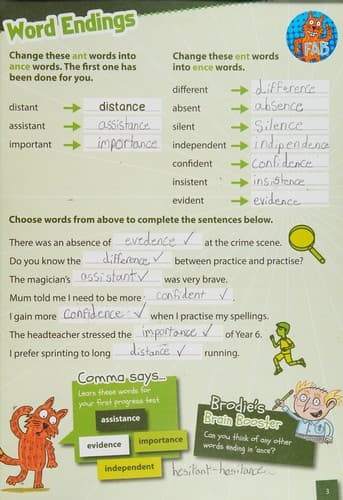 Word Endings
FAB
Change these ant words into ance words. The first one has been done for you.
distant distance
assistant assistance
important importance
Change these ent words into ence words.
different difference
absent absence
silent Silence
independent independence
confident confidence
insistent insistence
evident evidence
Choose words from above to complete the sentences below.
There was an absence of evedence ✓ at the crime scene.
Do you know the difference ✓ between practice and practise?
The magician's assistant ✓ was very brave.
Mum told me I need to be more confident ✓.
I gain more Confidence ✓ when I practise my spellings.
The headteacher stressed the importance ✓ of Year 6.
I prefer sprinting to long distance ✓ running.
Comma says...
Learn these words for
your first progress test
assistance
evidence importance
independent
Brodie's
Brain Booster
Can you think of any other
words ending in 'ance'?
hesitant-hesitance
3